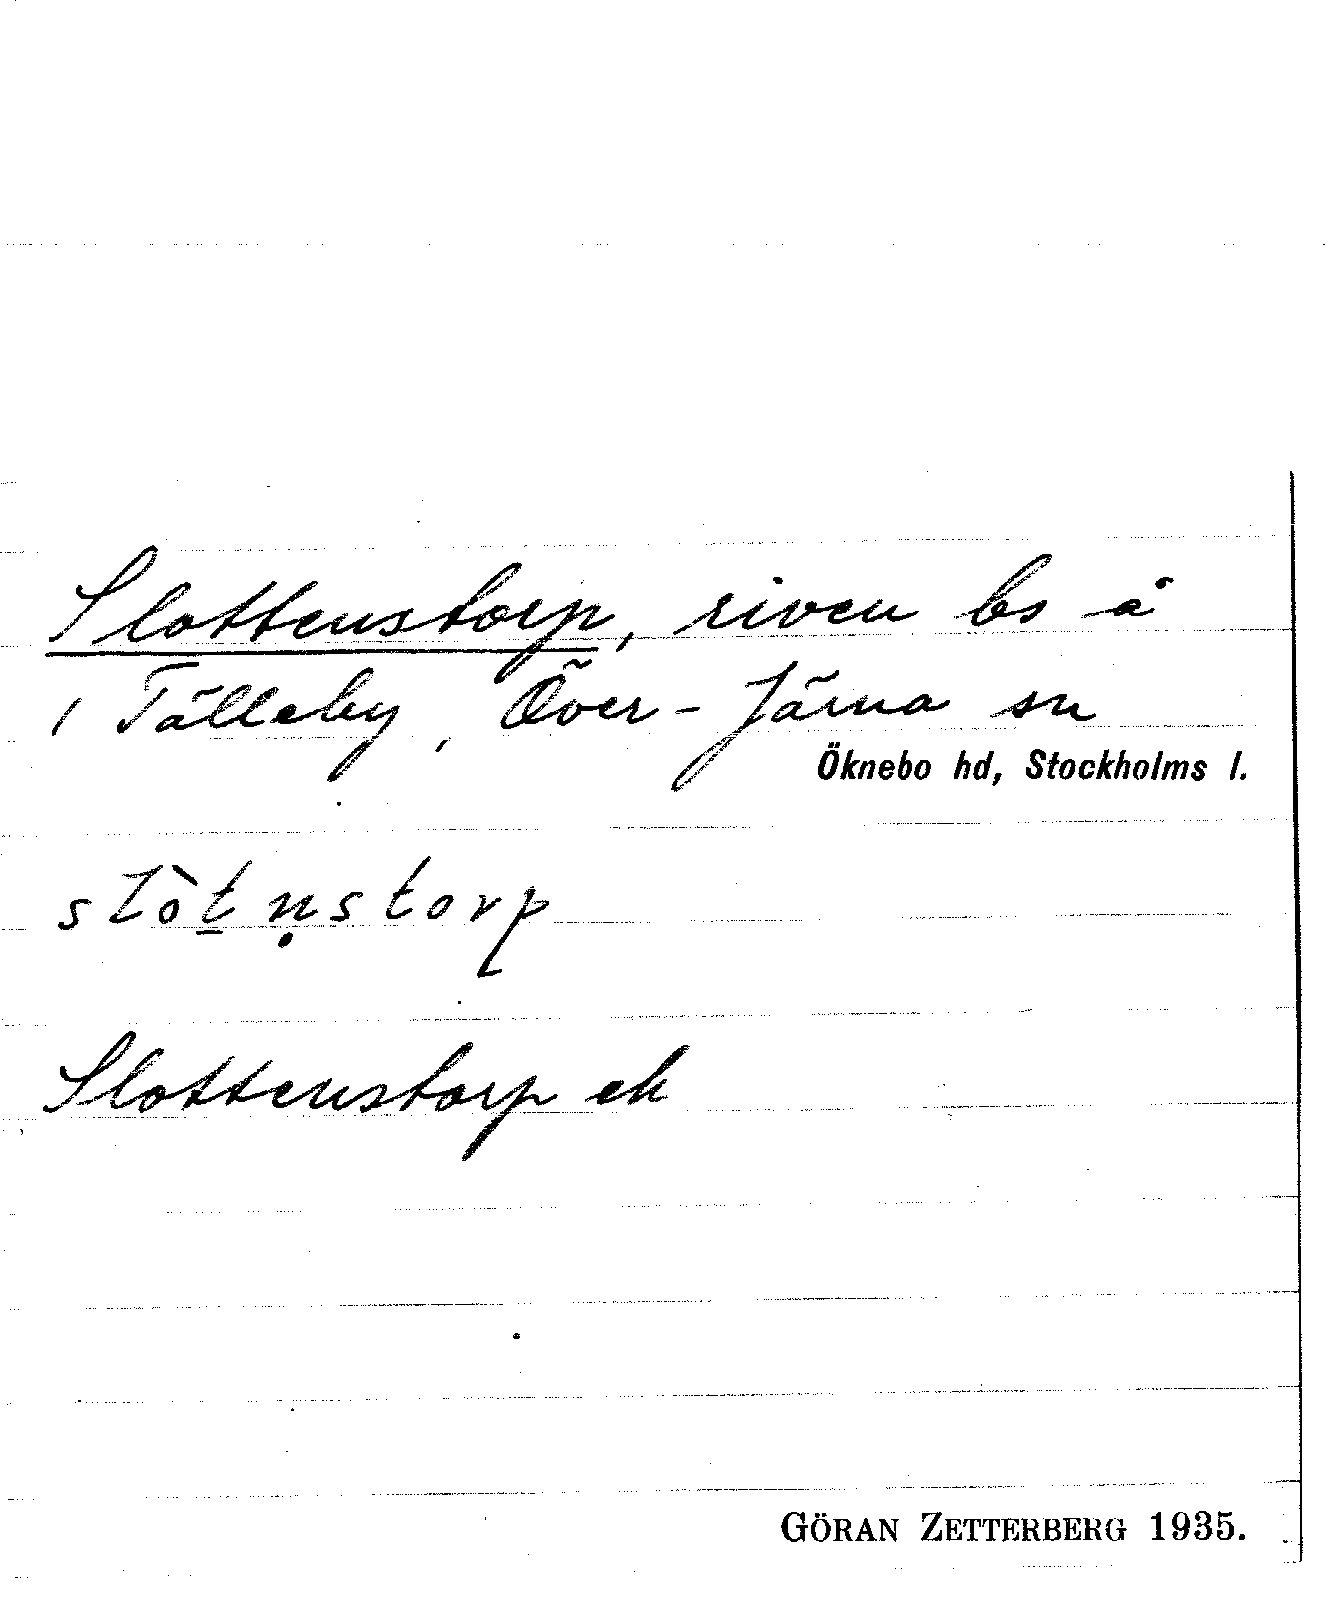 Slottenstorp, riven bs å
1 Tälleby, Över-Järna sn
Öknebo hd, Stockholms l.
slòt̲ṇstorp
Slottenstorp ek
GÖRAN ZETTERBERG 1935.